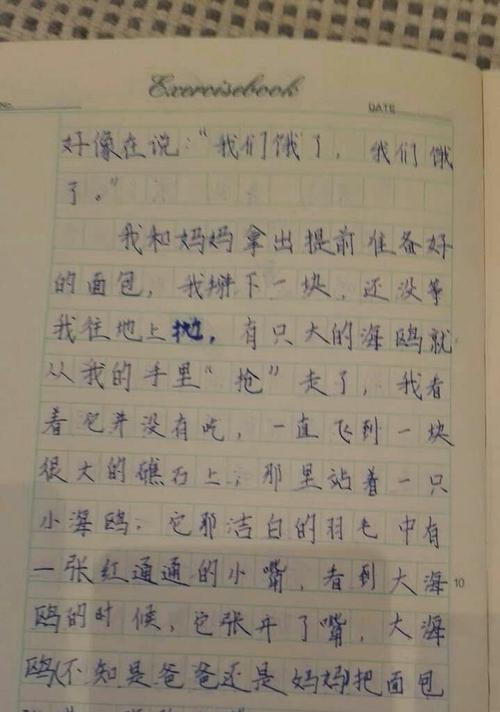 Exercisebook
NO.
DATE
好像在说："我们饿了，我们饿
了。"
我和妈妈拿出提前准备好
的面包，我掰下一块，还没等
我往地上抛，有只大的海鸥就
从我的手里"抢"走了，我看
着它并没有吃，一直飞到一块
很大的礁石上，那里站着一只
小海鸥，它那洁白的羽毛中有
一张红通通的小嘴，看到大海
10
鸥的时候，它张开了嘴，大海
鸥(不知是爸爸还是妈妈)把面包